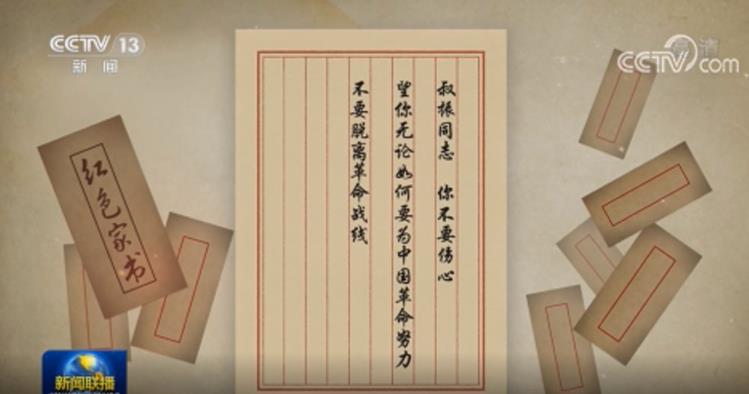 CCTV 13
新闻
高清
CCTV.com
红色家书
叔振同志 你不要伤心
望你无论如何要为中国革命努力
不要脱离革命战线
新闻联播